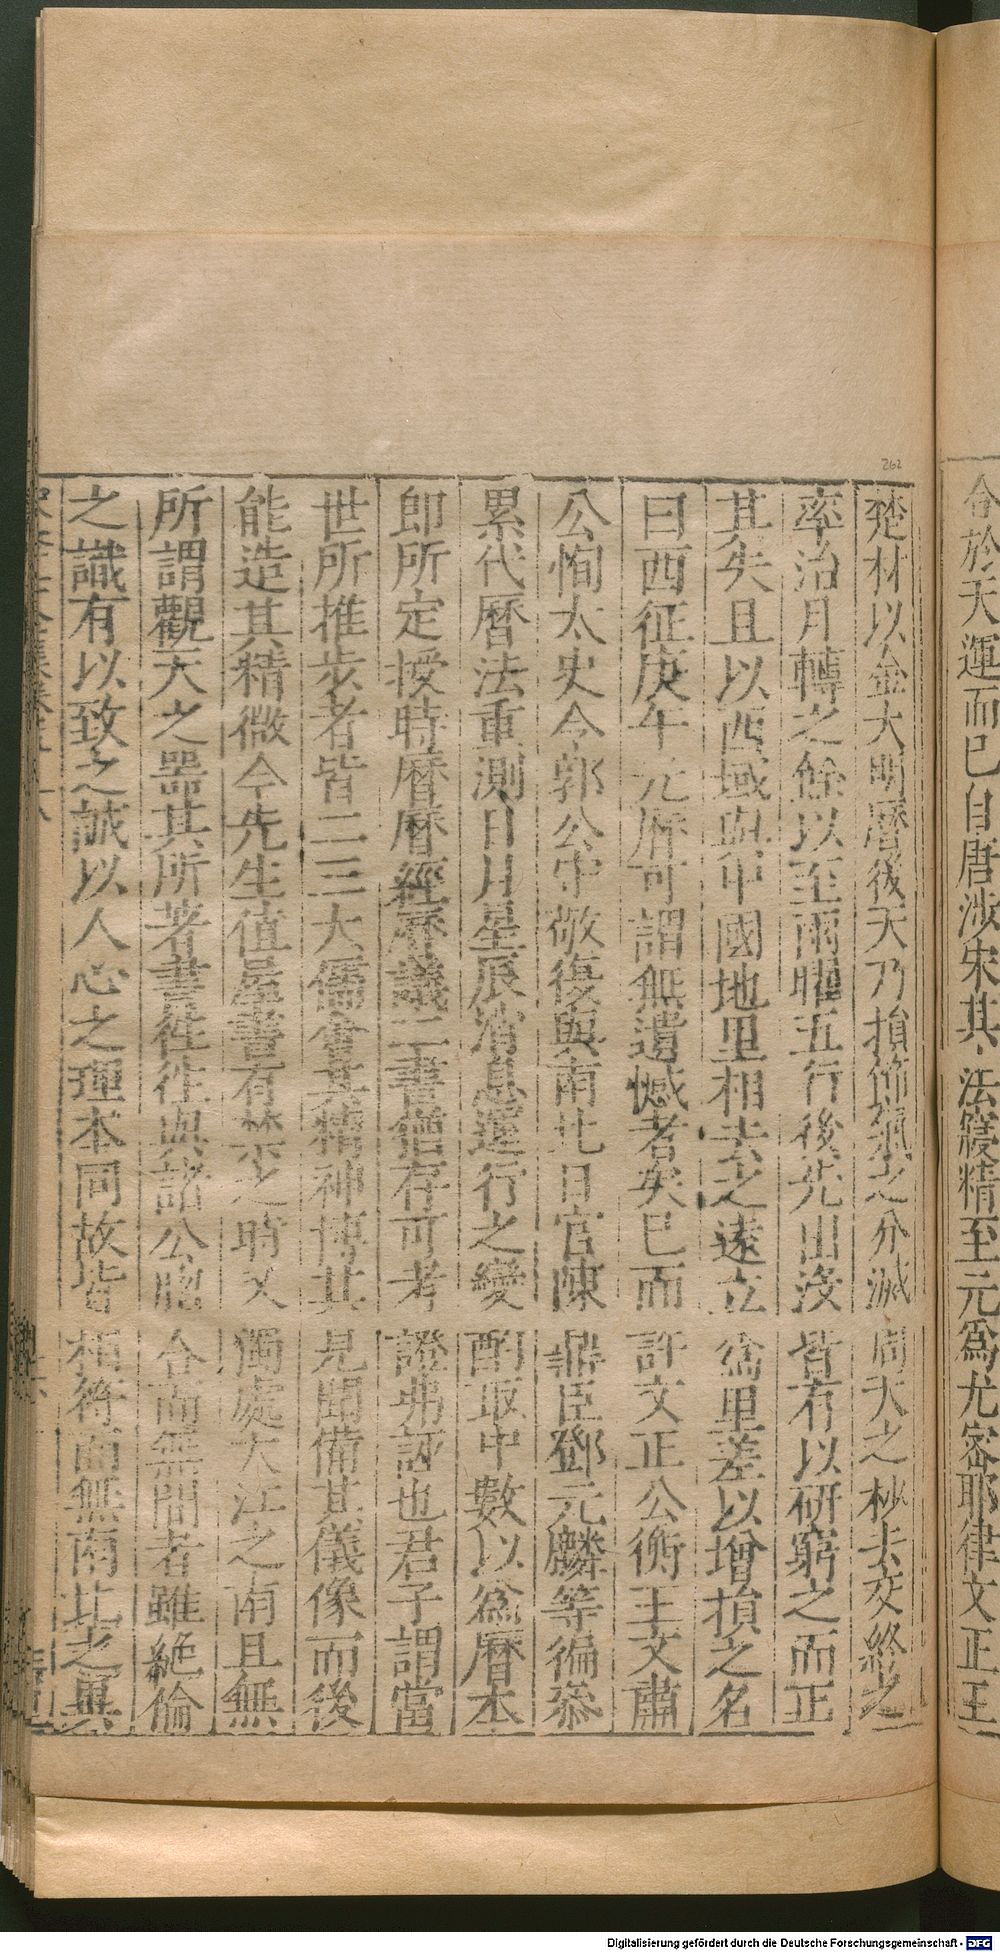 合於天運而已自唐涉宋其法寖精至元爲尤密耶律文正王
楚材以金大明曆後天乃損節氣之分減周天之杪去交終之
率治月轉之餘以至兩曜五行後先出沒皆有以研窮之而正
其失且以西域與中國地里相去之遠立爲里差以增損之名
曰西征庚午元曆可謂無遺憾者矣已而許文正公衡王文肅
公恂太史令郭公守敬復與南北日官陳鼎臣鄧元麟等徧叅
累代曆法重測日月星辰消息運行之變酌取中數以爲曆本
即所定授時曆曆經曆議二書僃存可考證弗誣也君子謂當
世所推步者皆二三大儒會其精神博其見聞備其儀像而後
能造其精微今先生值曆書有禁之時又獨處大江之南且無
所謂觀天之器其所著書徃徃與諸公脗合而無間者雖絶倫
之識有以致之誠以人心之理本同故皆相符而無南北之異
262
Digitalisierung gefördert durch die Deutsche Forschungsgemeinschaft - DFG